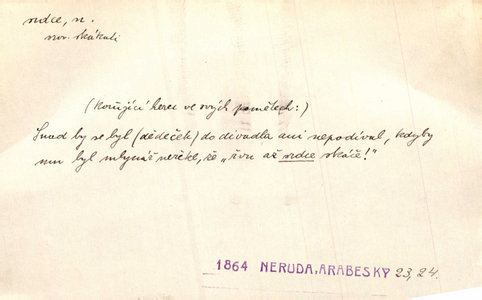 srdce, n.
srov. skákati
(Kočující herec ve svých pamětech:)
Snad by se byl (dědeček) do divadla ani nepodíval, kdyby
mu byl mlynář neřekl, že „řvu až srdce skáče!"
1864 NERUDA, ARABESKY 23, 24.